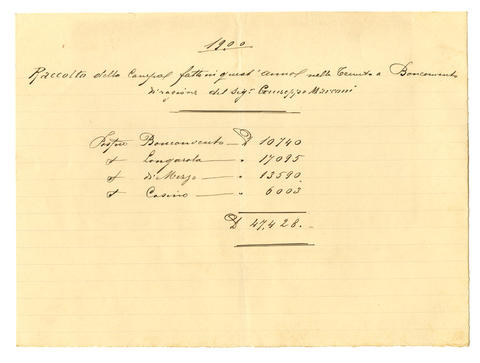 1900
Raccolto della Canapa fatta in quest'anno nelle Tenuta a Bonconvento
Di ragione del Sigr. Giuseppe Marconi
Bonconvento — 10740
Longarola — " 17095
di Mezzo — " 13590
Casino — " 6003
47,428.